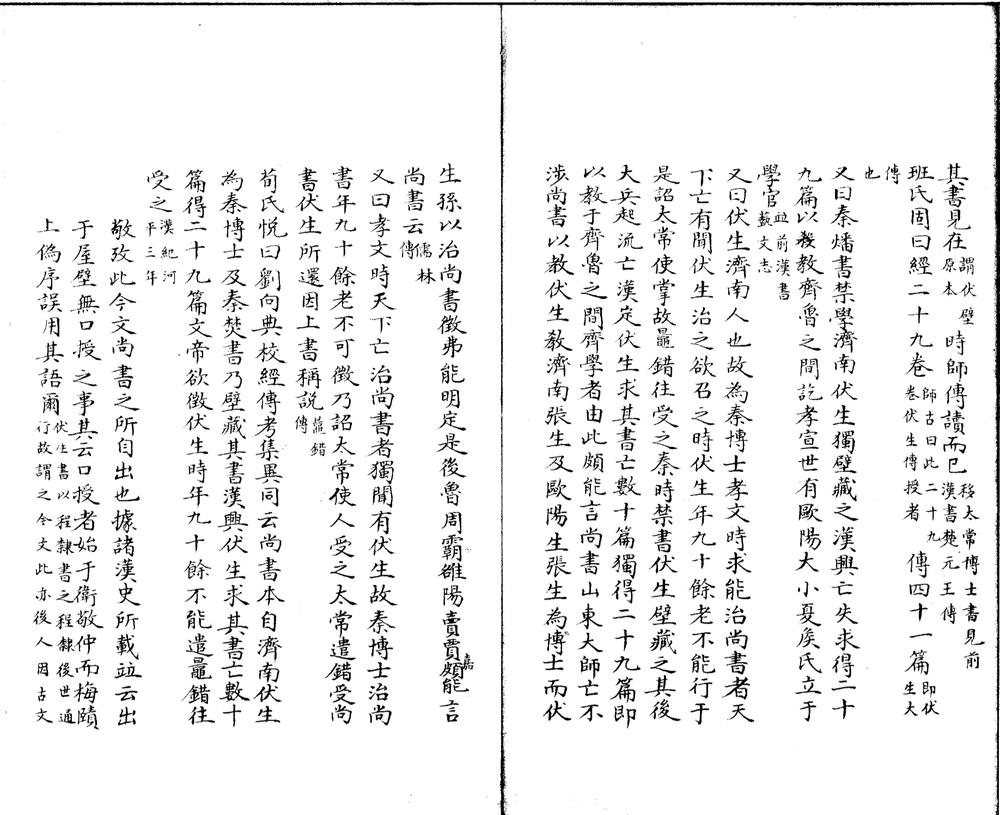 其書見在謂伏壁原本時師傳讀而已移太常博士書見前漢書楚元王傳
班氏固曰經二十九卷師古曰此二十九卷伏生傳授者傳四十一篇即伏生大
傳
也
又曰秦燔書禁學濟南伏生獨壁藏之漢興亡失求得二十
九篇以教齊魯之間訖孝宣世有歐陽大小夏侯氏立于
學官竝前漢書藝文志
又曰伏生濟南人也故為秦博士孝文時求能治尚書者天
下亡有聞伏生治之欲召之時伏生年九十餘老不能行于
是詔太常使掌故鼂錯往受之秦時禁書伏生壁藏之其後
大兵起流亡漢定伏生求其書亡數十篇獨得二十九篇即
以教于齊魯之間齊學者由此頗能言尚書山東大師亡不
涉尚書以教伏生教濟南張生及歐陽生張生為博士而伏
生孫以治尚書徵弗能明定是後魯周霸雒陽賈嘉頗能言
尚書云儒林傳
又曰孝文時天下亡治尚書者獨聞有伏生故秦博士治尚
書年九十餘老不可徵乃詔太常使人受之太常遣錯受尚
書伏生所還因上書稱説鼂錯傳
荀氏悅曰劉向典校經傳考集異同云尚書本自濟南伏生
為秦博士及秦焚書乃壁藏其書漢興伏生求其書亡數十
篇得二十九篇文帝欲徵伏生時年九十餘不能遣鼂錯往
受之漢紀河平三年
敬攷此今文尚書之所自出也據諸漢史所載竝云出
于屋壁無口授之事其云口授者始于衛敬仲而梅賾
上偽序誤用其語爾伏生書以程隸書之程隸後世通行故謂之今文此亦後人因古文